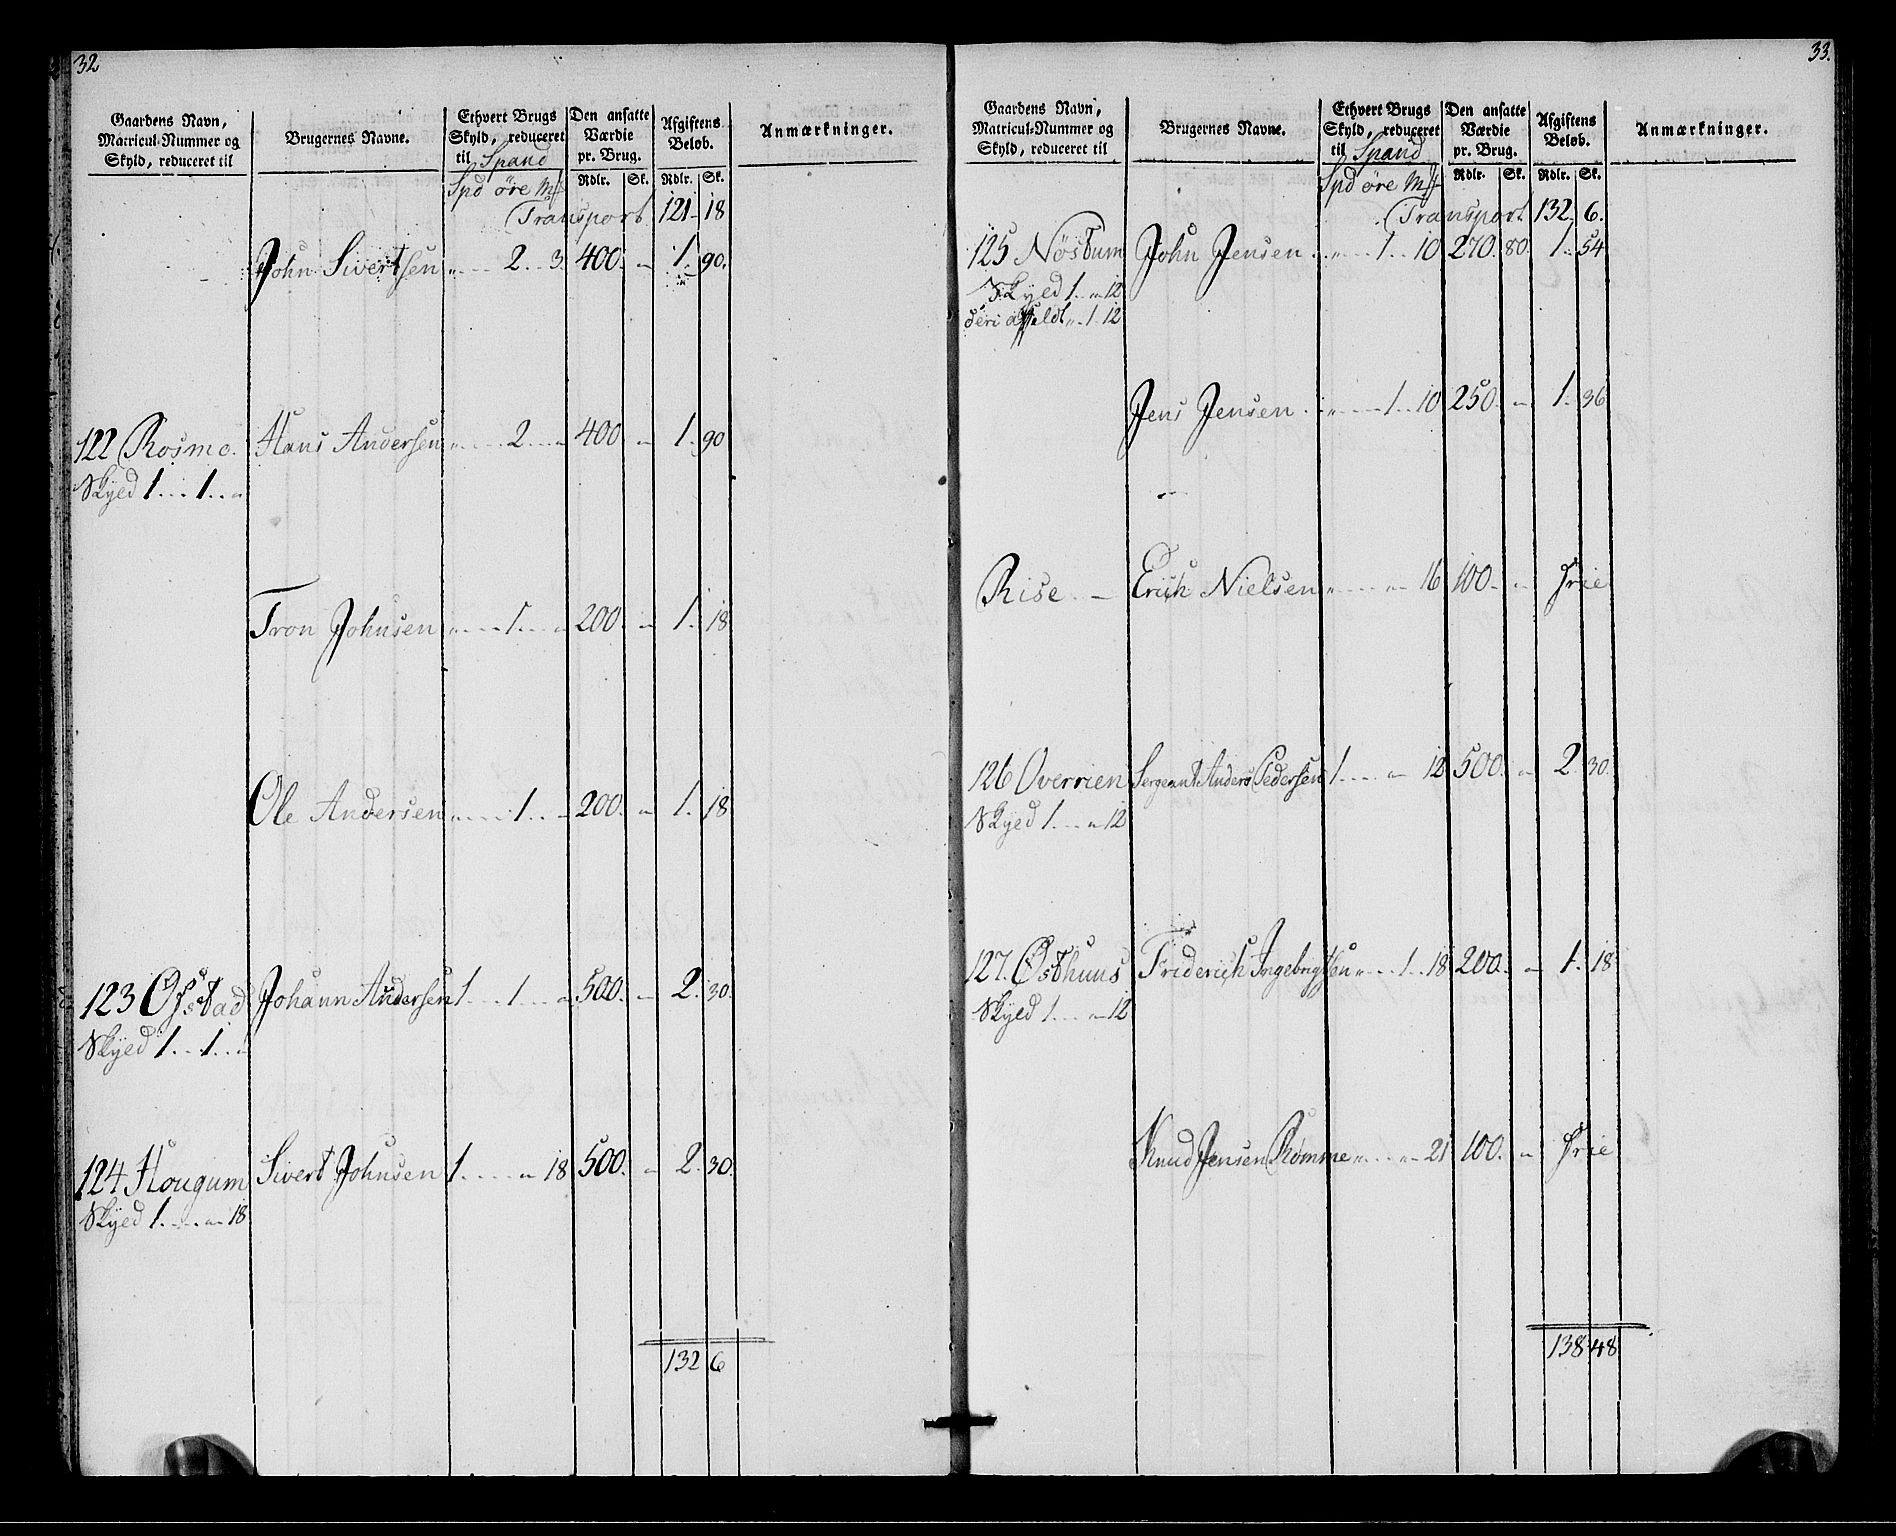 32
Gaardens Navn, Matricul-Nummer og Skyld, reduceret til
Brugernes Navne.
Ethvert Brugs Skyld, reduceret til Spand
Den ansatte Værdie pr. Brug.
Afgiftens Beløb.
Anmærkninger.
Spd øre Mk
Rdlr. Sk. Rdlr. Sk.
Transport 121 - 18
John Sivertsen „ 2 3. 400. „ 1. 90.
122 Rosmo. Hans Andersen „ 2 „ 400 „ 1. 90
Skyld 1 1 „
Tron Johnsen „ 1 „ 200. „ 1. 18
Ole Andersen „ 1 „ 200. „ 1. 18
123 Ofstad Johann Andersen 1 1 „ 500. „ 2. 30.
Skyld 1 1 „
124 Hougum Sivert Johnsen 1 „ 18 500. „ 2. 30.
Skyld 1 „ 18
132 6
33.
Gaardens Navn, Matricul-Nummer og Skyld, reduceret til
Brugernes Navne.
Ethvert Brugs Skyld, reduceret til Spand
Den ansatte Værdie pr. Brug.
Afgiftens Beløb.
Anmærkninger.
Spd øre Mk
Rdlr. Sk. Rdlr. Sk.
Transport 132. 6.
125 Nøstum John Jensen „ 1 10 270. 80. 1. 54
Skyld 1 „ 12
deri affeldt „ 1 12
Jens Jensen „ 1 10 250. „ 1. 36
Rise Erich Nielsen „ „ 16 100. „ frie
126 Overrien Sergeant Anders Pedersen 1 „ 12 500. „ 2. 30.
Skyld 1 „ 12
127. Østhuus Friderich Ingebrigtsen „ 1 18 200. „ 1. 18
Skyld 1 „ 12
Knud Jensen Rømme „ „ 21 100. „ frie
138 48